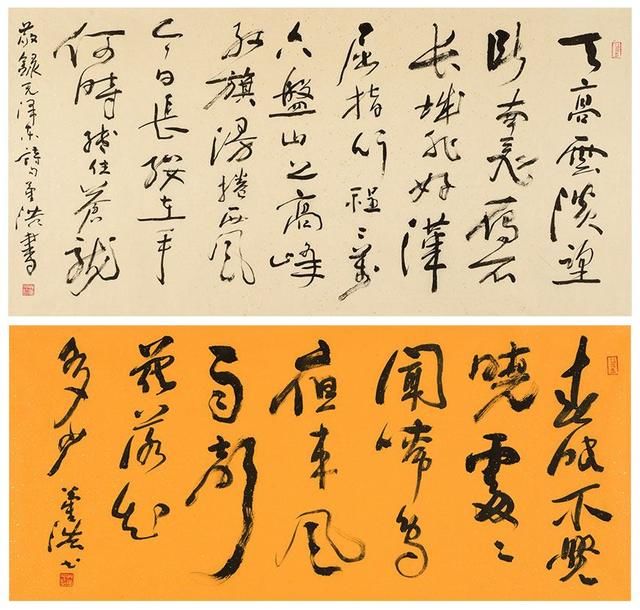 天高雲淡望
断南飛雁不
長城非好漢
屈指行程二萬
六盤山上高峰
紅旗漫捲西風
今日長纓在手
何時縛住蒼龍
敬錄毛澤東詩句董浩書
春眠不覺
曉處々
聞啼鳥
夜來風
雨聲
花落知
多少
董浩书